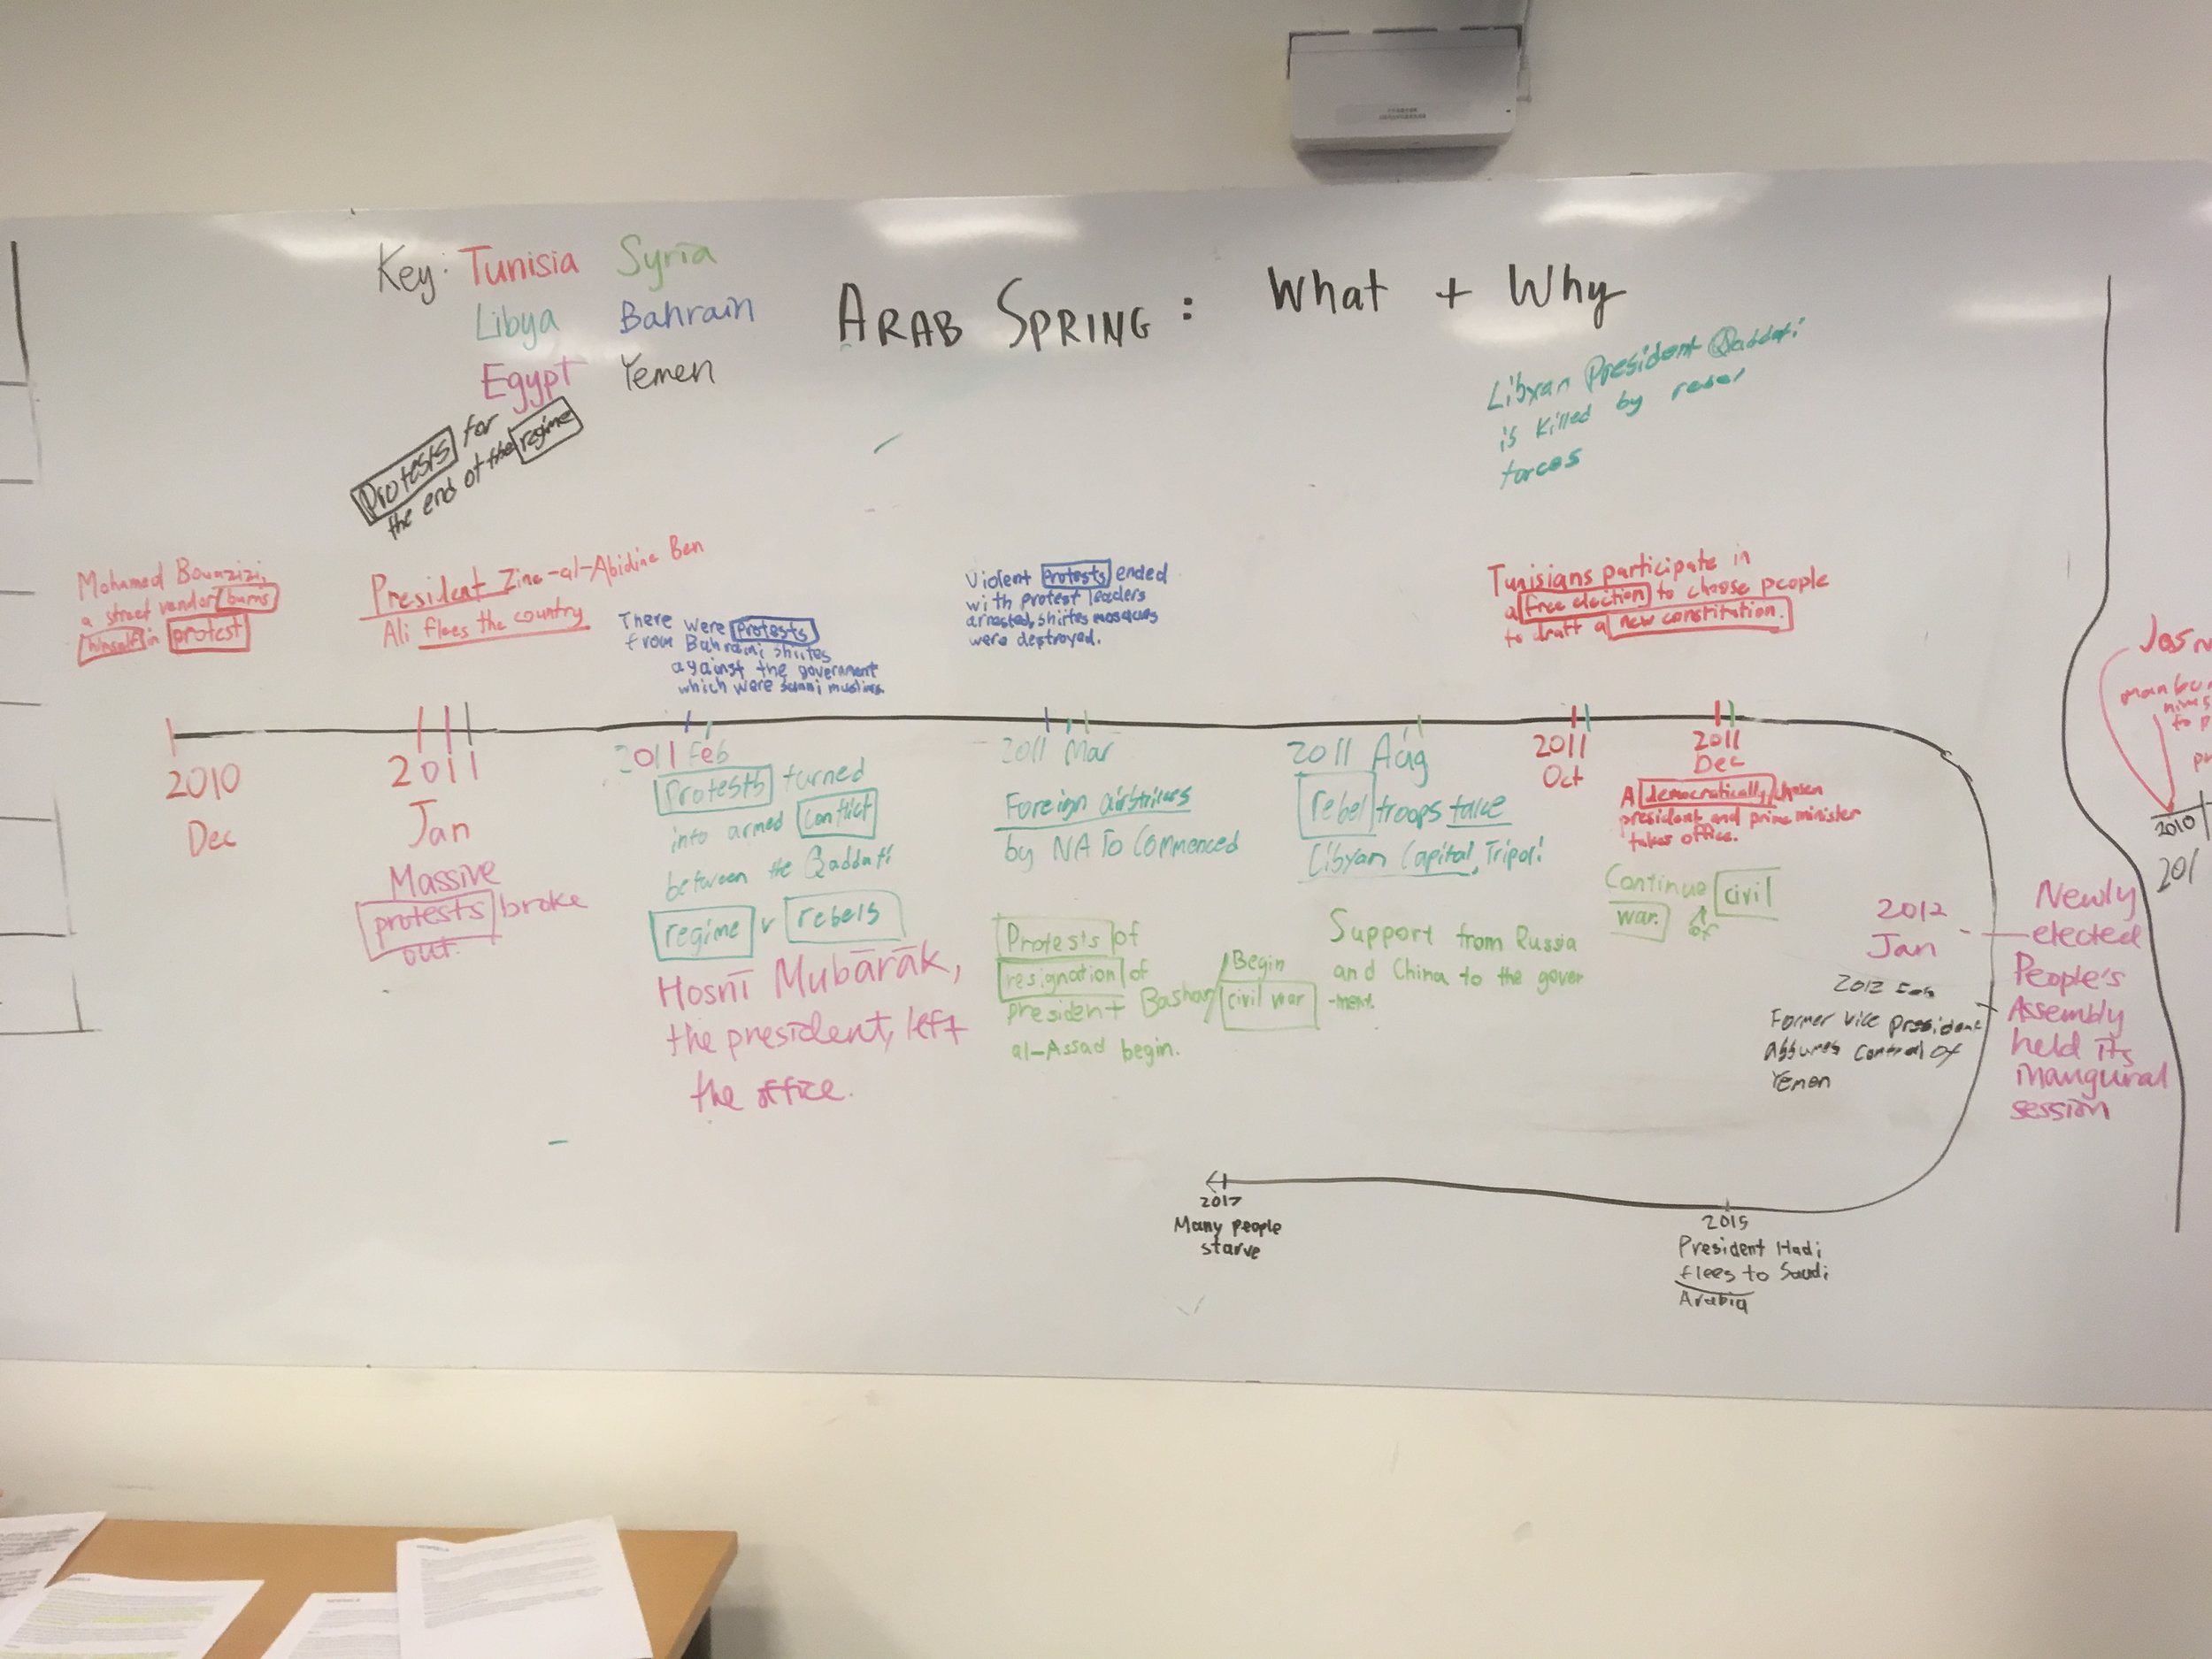 Key: Tunisia Syria
Libya Bahrain
Egypt Yemen
ARAB SPRING: What + Why
Protests for
the end of the regime
Libyan President Qaddafi
is killed by
forces
Mohamed Bouazizi,
a street vendor burns
himself in protest
President Zine-al-Abidine Ben
Ali flees the country
There were protests
from Bahraini shiites
against the government
which were sunni muslims
Violent protests ended
with protest leaders
arrested, shiites mosques
were destroyed.
Tunisians participate in
a free election to choose people
to draft a new constitution.
2010
Dec
2011
Jan
Massive
protests broke
out.
2011 Feb
Protests turned
into armed conflict
between the Qaddafi
regime v rebels
Hosnī Mubārāk,
the president, left
the office.
2011 Mar
Foreign airstrikes
by NATO Commenced
Protests of
resignation of
president Bashar
al-Assad begin.
Begin
civil war
2011 Aug
rebel troops take
Libyan Capital, Tripoli
Support from Russia
and China to the gover
-ment.
2011
Oct
2011
Dec
A democratically chosen
president and prime minister
takes office.
Continue civil
war.
of
2012
Jan
Newly
elected
People's
Assembly
held its
inangural
session
2012 Feb
Former vice president
assumes control of
Yemen
2015
President Hadi
flees to Saudi
Arabia
2017
Many people
starve
2010
201